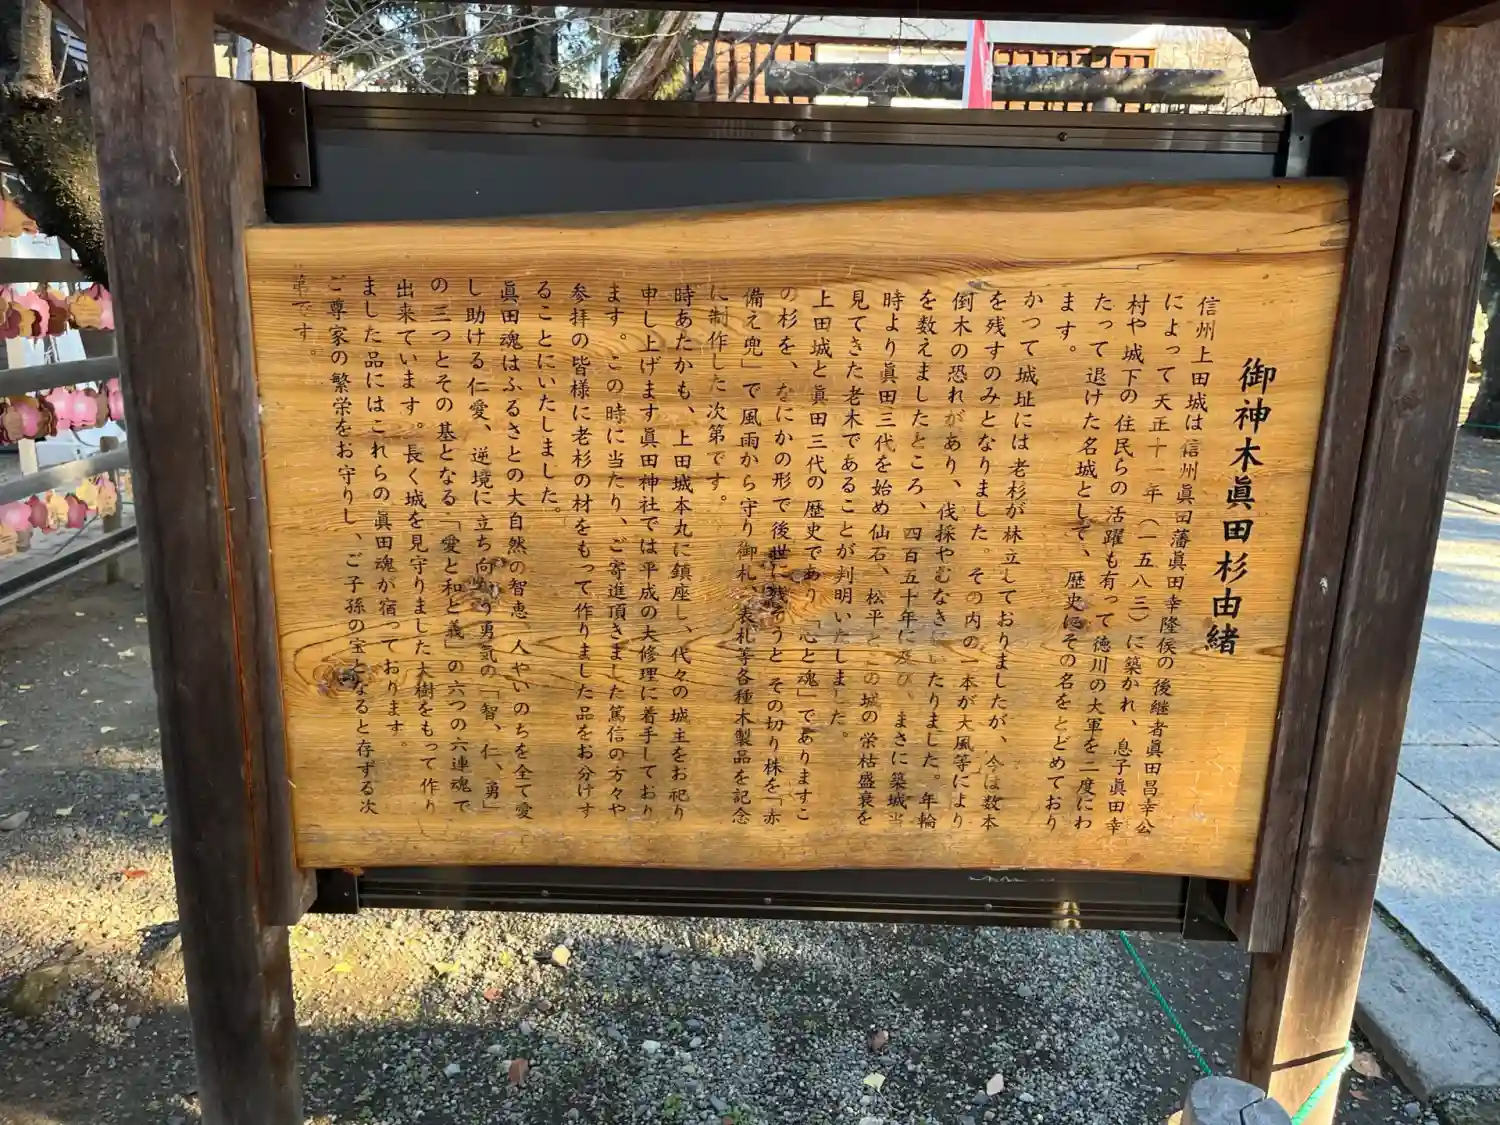 御神木眞田杉由緒
信州上田城は信州眞田藩眞田幸隆侯の後継者眞田昌幸公
によって天正十一年（一五八三）に築かれ、息子眞田幸
村や城下の住民らの活躍も有って徳川の大軍を二度にわ
たって退けた名城として、歴史にその名をとどめており
ます。
かつて城址には老杉が林立しておりましたが、今は数本
を残すのみとなりました。その内の一本が大風等により
倒木の恐れがあり、伐採やむなきにいたりました。年輪
を数えましたところ、四百五十年に及び、まさに築城当
時より眞田三代を始め仙石、松平とこの城の栄枯盛衰を
見てきた老木であることが判明いたしました。
上田城と眞田三代の歴史であり「心と魂」でありますこ
の杉を、なにかの形で後世に残そうと その切り株を「赤
備え兜」で風雨から守り御札、表札等各種木製品を記念
に制作した次第です。
時あたかも、上田城本丸に鎮座し、代々の城主をお祀り
申し上げます眞田神社では平成の大修理に着手しており
ます。この時に当たり、ご寄進頂きました篤信の方々や
参拝の皆様に老杉の材をもって作りました品をお分けす
ることにいたしました。
眞田魂はふるさとの大自然の智恵 人やいのちを全て愛
し助ける仁愛、逆境に立ち向かう勇気の「智、仁、勇」
の三つとその基となる「愛と和と義」の六つの六連魂で
出来ています。長く城を見守りました大樹をもって作り
ました品にはこれらの眞田魂が宿っております。
ご尊家の繁栄をお守りし、ご子孫の宝となると存ずる次
第です。